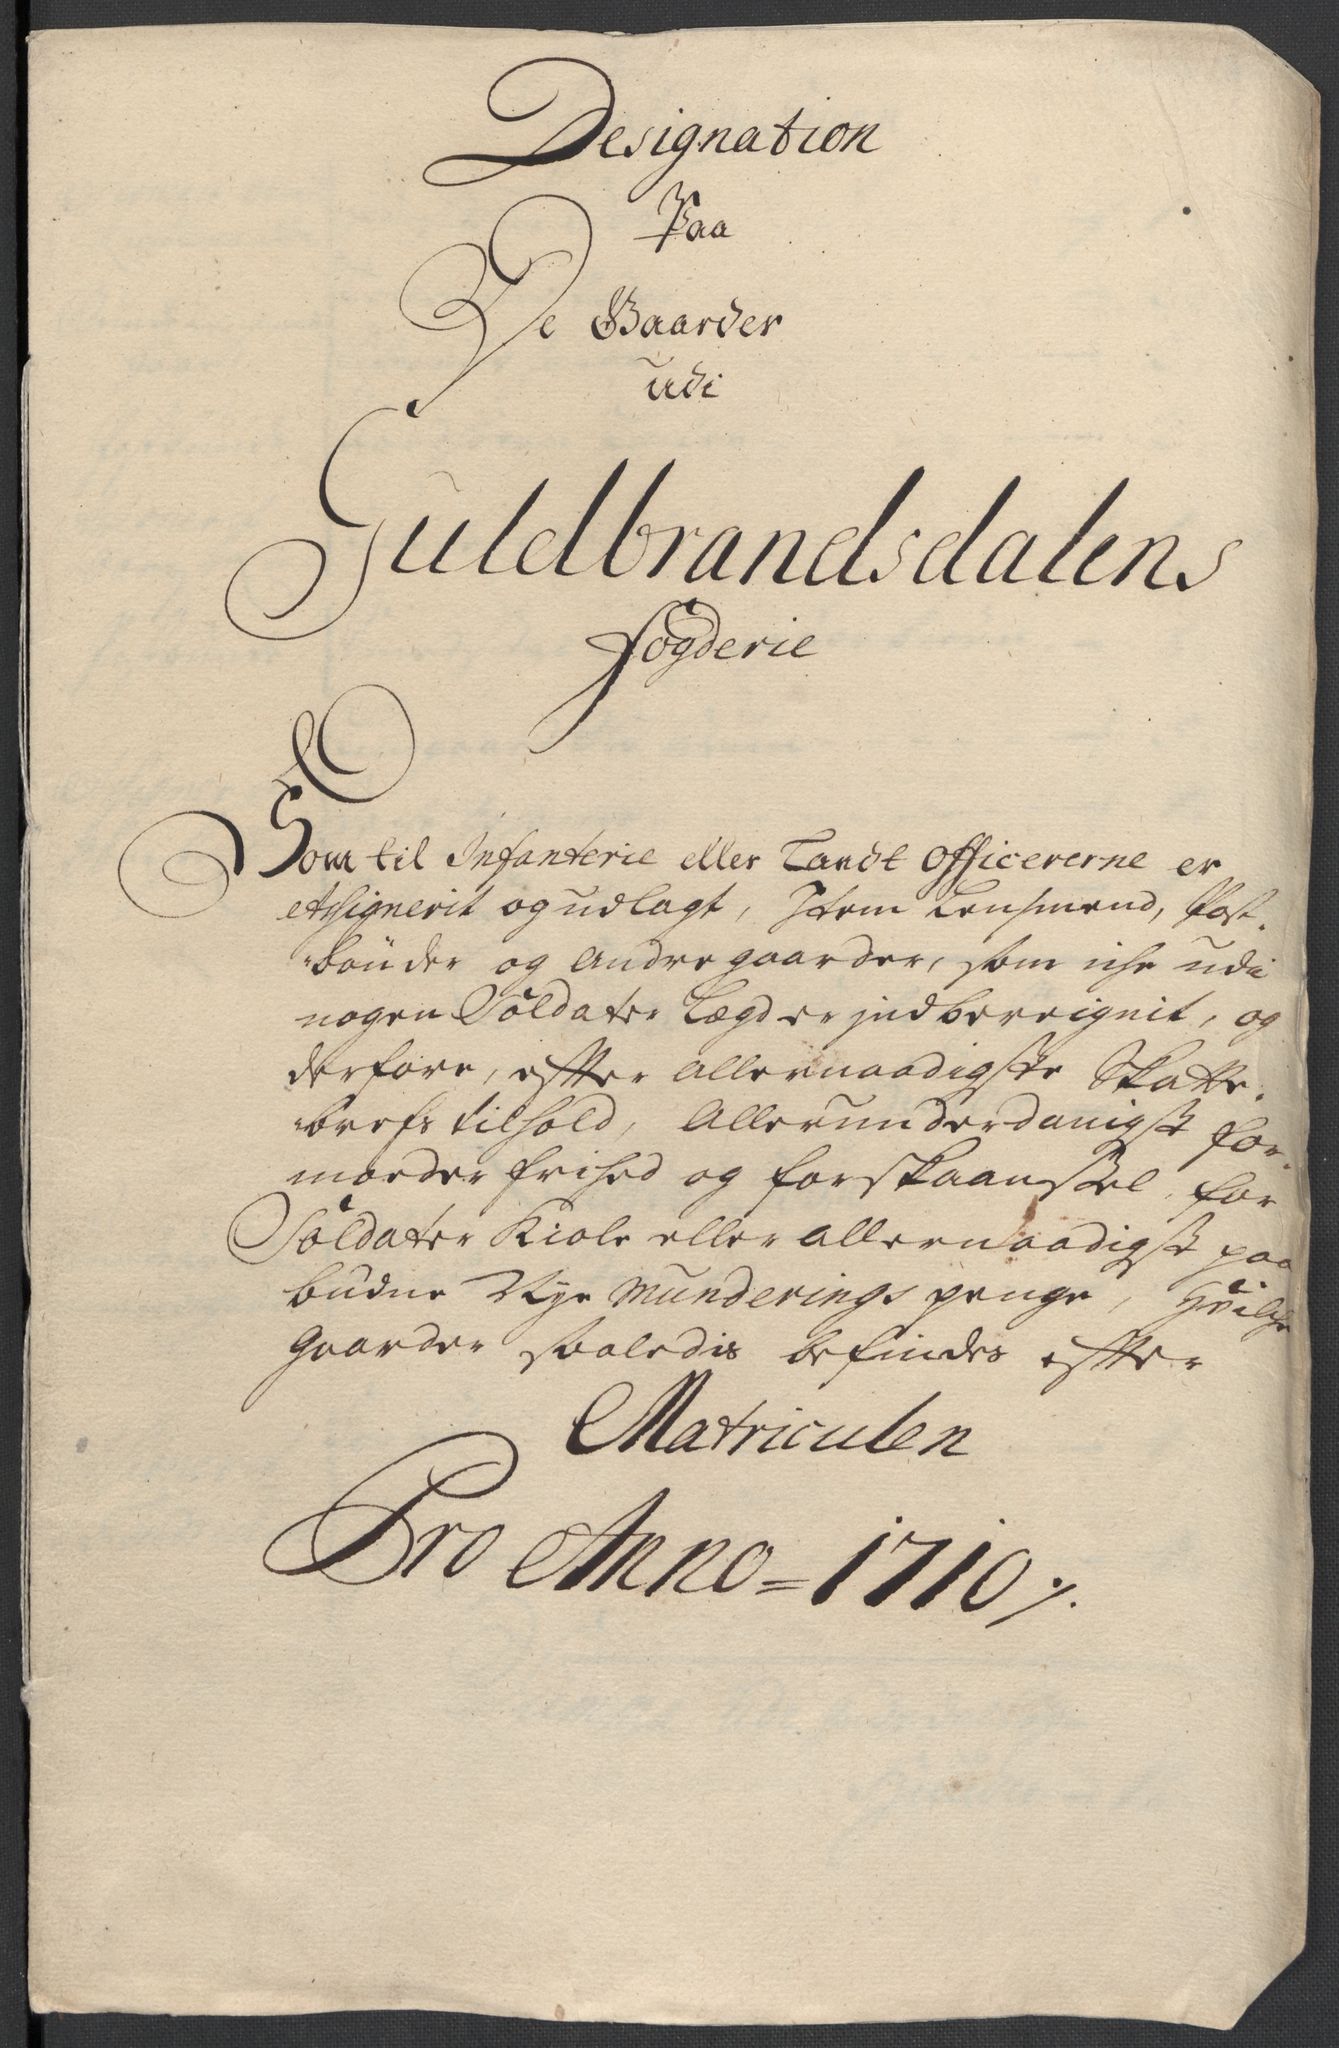 Designation
Paa
De Gaarder
udi
Guldbrandsdalens
fogderie
Som til Infanterie eller Landt Officererne er
Assignerit og udlagt, Item Lensmend, Post-
bønder og Andre gaarder, som iche udi
nogen Soldater Lægd er indbereignit, og
derfore, efter allernaadigste Skatte-
brefs tilhold, Allerunderdanigst for-
moeder frihed og forskaansel, for
Soldater Kiole eller allernaadigst paa
budne Nye Munderings penge, Hvilche
Gaarder saaledis befindes efter
Matriculen
Pro Anno = 1710 ⁒